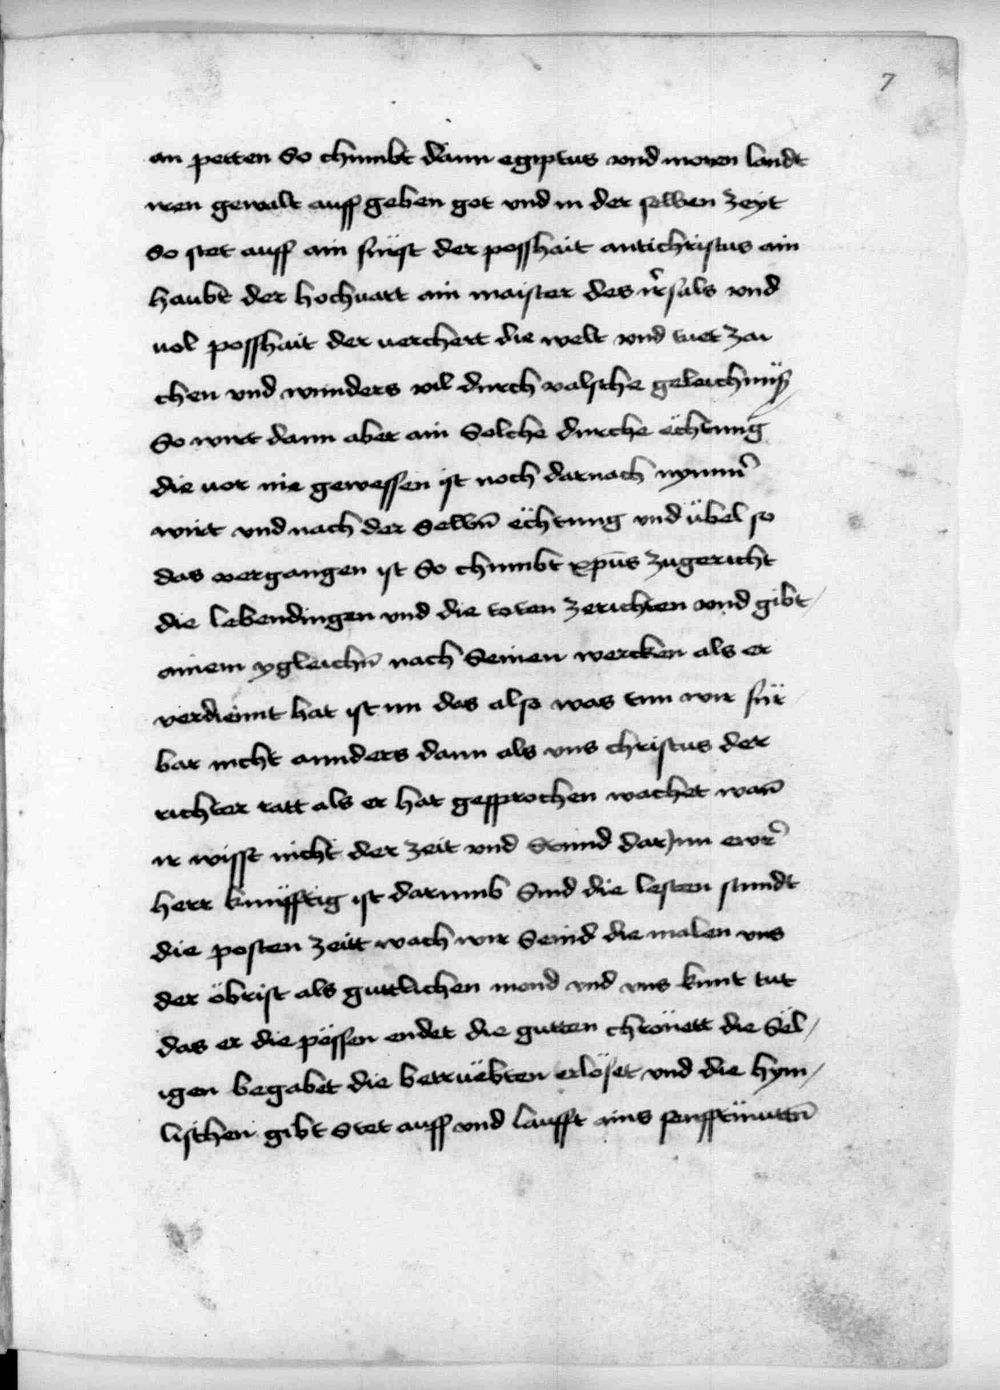 7
an petten So chumbt dann egiptus vnd moren landt
iren gewalt auff geben got vnd in der selben zeyt
so stet auff ain fürst der posshait antichristus ain
haubt der hochuart ain maister des irsals vnd
uol posshait der verchert die welt vnd tuet zai
chen vnd wunders vil durch valsche geleichnüß
So wirt dann aber ain Solche durche ächtung
die uor nie gewessen ist noch darnach nymm̄
wirt vnd nach der Selbn̄ ächtung vnd übel so
das vergangen ist So chumbt xp̄us zugericht
die lebendingen vnd die toten zerichten vnd gibt
ainem ygleichn̄ nach Seinen wercken als er
verdiennt hat ist im das also was tun wir für
bar nicht annders dann als vns christus der
richter ratt als er hat gesprochen wachet wan̄
ir wisst nicht der zeit vnd Stund dar Inn ewr̄
herr künfftig ist darumb Sind die lesten stundt
die posten zeitt wach wir Seind die malen vns
der öbrist als guttlichen mond vnd vns kunt tut
das er die pössen endet die gutten chrönett die Säl
igen begabet die betrüebten erlöset vnd die hym
lischen gibt Stet auff vnd laufft ains senfftmuttn̄